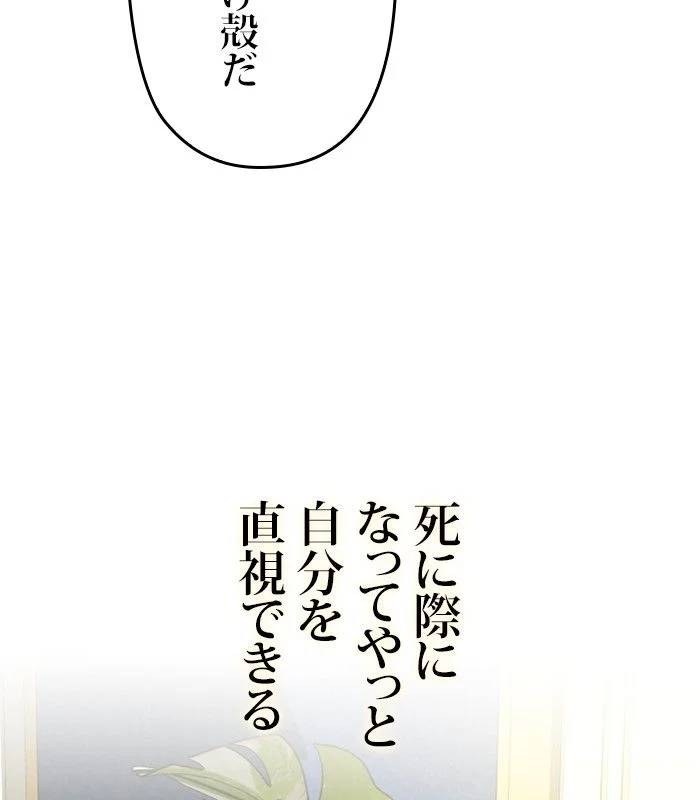 け殻だ
死に際に
なってやっと
自分を
直視できる